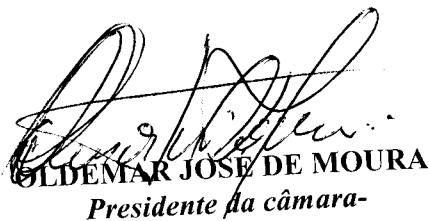 OLDEMAR JOSÉ DE MOURA
Presidente da câmara-